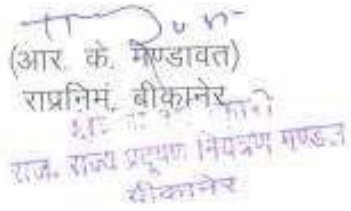 (आर. के. मेण्डावत)
राप्रनिमं, बीकानेर
राज. राज्य प्रदूषण नियंत्रण मण्डल
बीकानेर